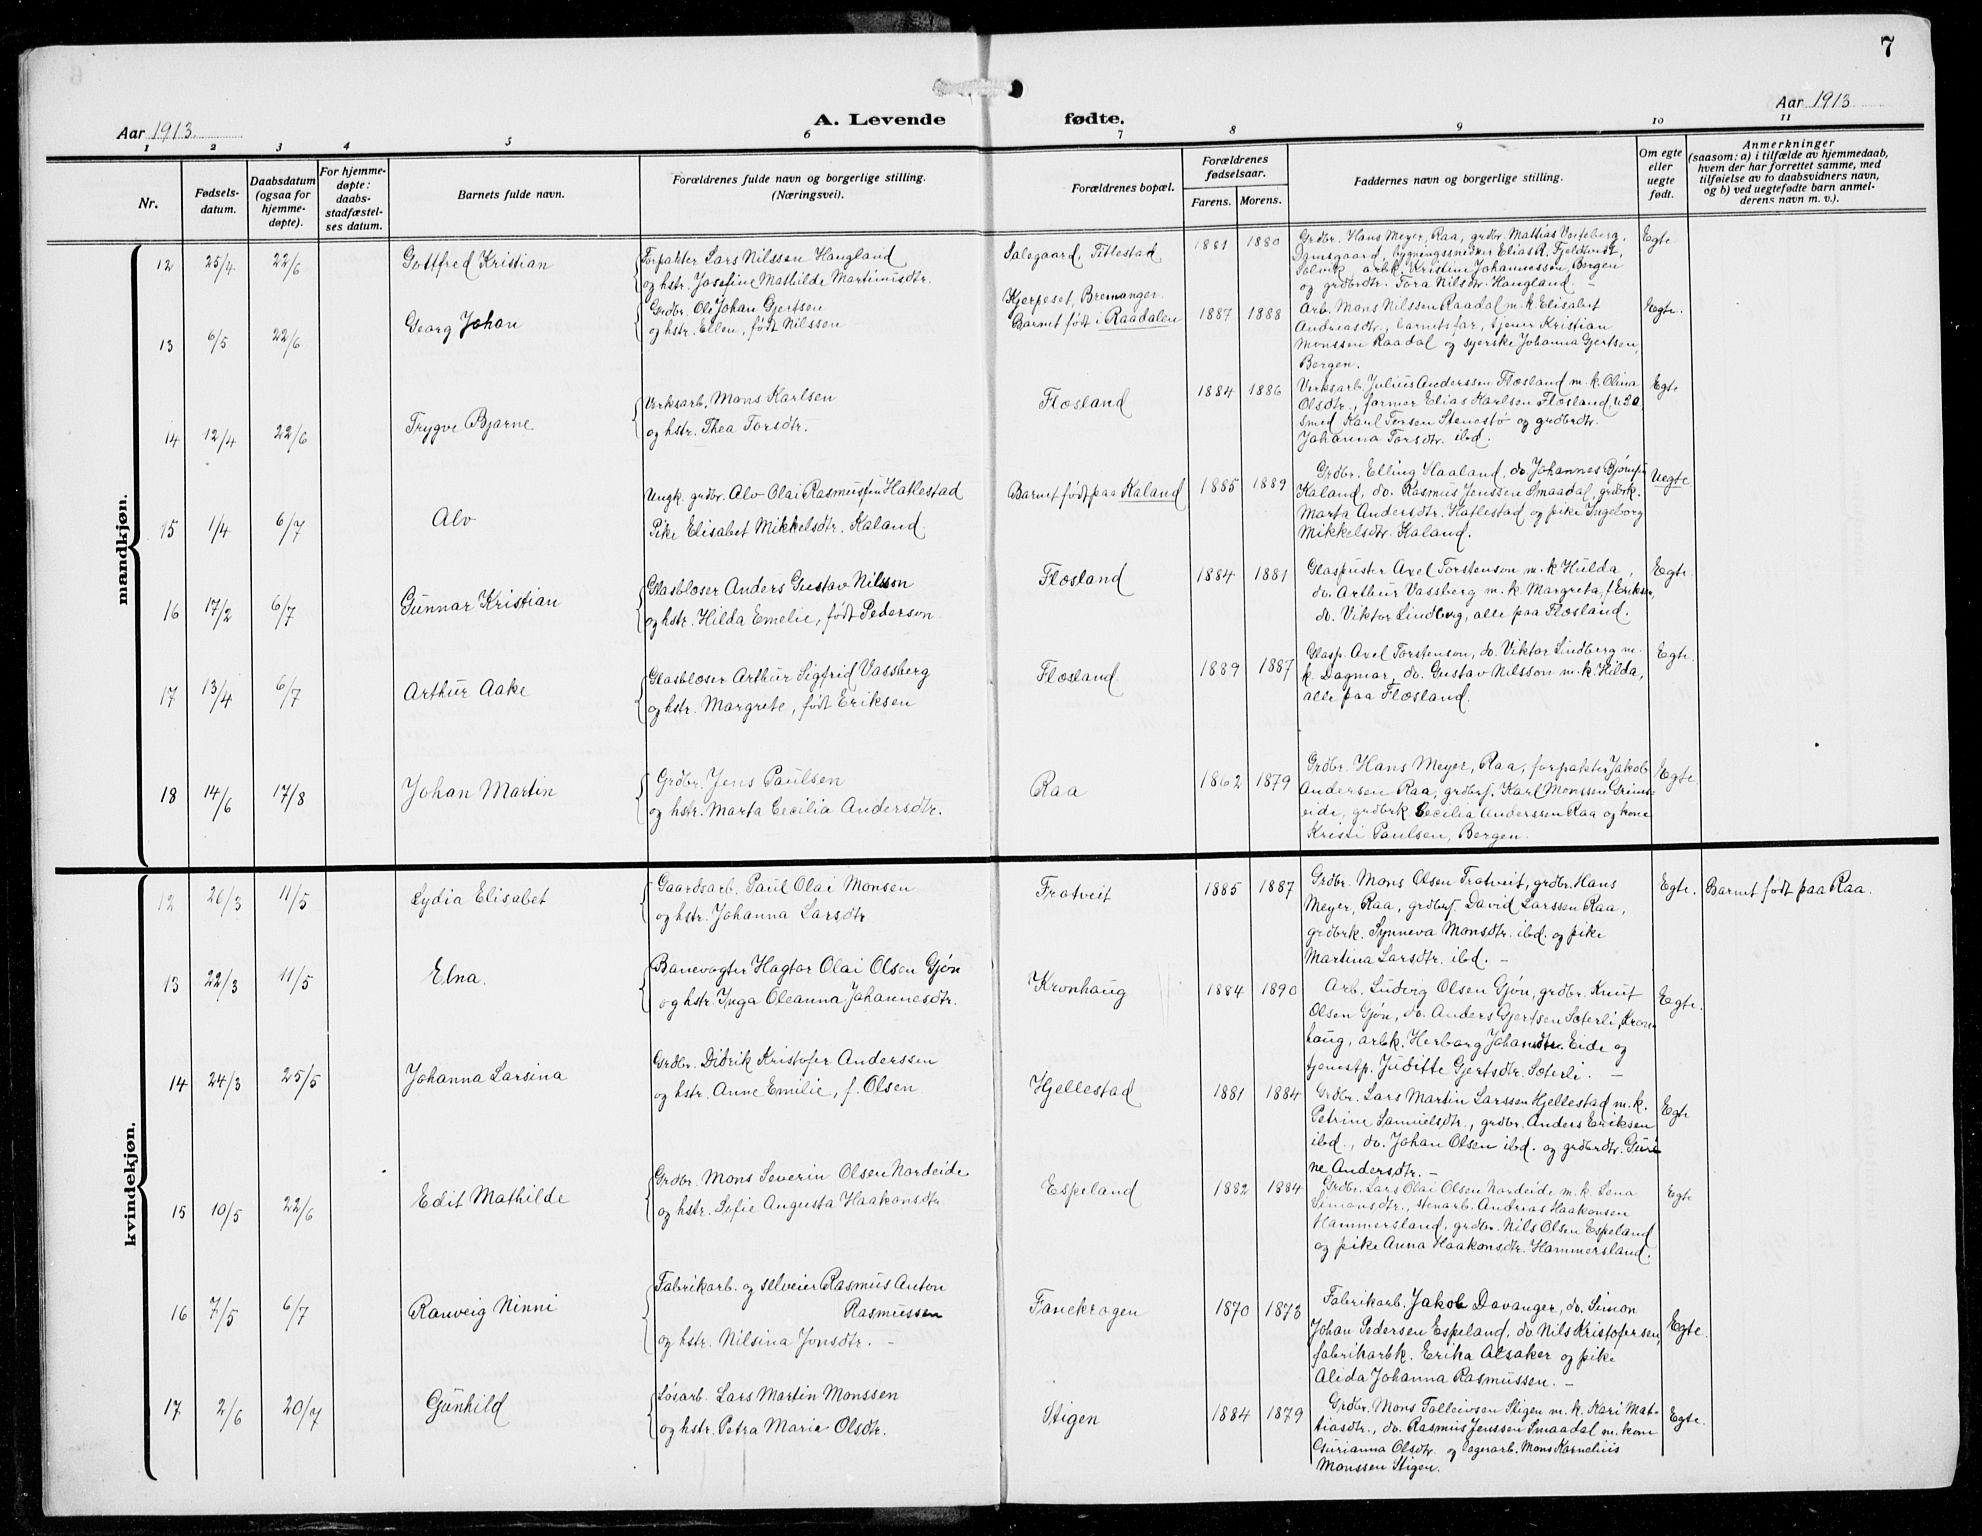 7
Aar 1913.
A. Levende fødte.
Aar 1913
1 2 3 4 5 6 7 8 9 10 11
Nr.
Fødsels-
datum.
Daabsdatum
(ogsaa for
hjemme-
døpte).
For hjemme-
døpte:
daabs-
stadfæstel-
ses datum.
Barnets fulde navn.
Forældrenes fulde navn og borgerlige stilling.
(Næringsvei).
Forældrenes bopæl.
Forældrenes
fødselsaar.
Farens. Morens.
Faddernes navn og borgerlige stilling.
Om egte
eller
uegte
født.
Anmerkninger
(saasom: a) i tilfælde av hjemmedaab,
hvem der har forrettet samme, med
tilføielse av to daabsvidners navn,
og b) ved uegtefødte barn anmel-
derens navn m. v.).
mandkjøn.
12 25/4 22/6 Gottfred Kristian
Forpakter Lars Nilssen Haugland
og hstr. Josefine Mathilde Martinusdtr.
Salegaard, Titlestad
1881 1880
Grdbr. Hans Meyer, Raa, grdbr. Mattias Varteberg,
Damsgaard, bygningssnedker Elias R. Fjeldtvedt,
Solvik, arbk. Kristine Johannessen, Bergen
og grdbrdtr. Tora Nilsdtr. Haugland. –
Egte
13 6/5 22/6 Georg Johan
Grdbr. Ole Johan Gjertsen
og hstr. Ellen, født Nilssen
Kjerpeset, Bremanger.
Barnet født i Raadalen
1887 1888
Arb. Mons Nilssen Raadal m. k. Elisabet
Andreasdtr., barnets far, tjener Kristian
Monssen Raadal og syerske Johanna Gjertsen,
Bergen.
Egte.
14 12/4 22/6 Trygve Bjarne
Verksarb. Mons Karlsen
og hstr. Thea Torsdtr.
Flæsland
1884 1886
Verksarb. Julius Anderssen Flæsland m. k. Olina
Olsdtr., former Elias Karlsen Flæsland,
smed Karl Torsen Stenestø og grdbrdtr.
Johanna Torsdtr. ibd.
Egte
15 1/4 6/7 Alv
Ungk. grdbr. Alv Olai Rasmussen Hatlestad
Pike Elisabet Mikkelsdtr. Kaland.
Barnet født paa Kaland
1885 1889
Grdbr. Elling Haaland, do. Johannes
Kaland, do. Rasmus Jenssen Smaadal, grdbrk.
Marta Andersdtr. Hatlestad og pike Ingeborg
Mikkelsdtr. Kaland.
Uegte
16 17/2 6/7 Gunnar Kristian
Glasblæser Anders Gustav Nilsson
og hstr. Hilda Emelie, født Pederson.
Flæsland
1884 1881
Glaspuster Axel Torstenson m. k. Hulda,
do. Arthur Vassberg m. k. Margreta, f. Eriksen,
do. Viktor Lindberg, alle paa Flæsland.
Egte.
17 13/4 6/7 Arthur Aake
Glasblæser Arthur Sigfrid Vassberg
og hstr. Margrete, født Eriksen
Flæsland
1889 1887
Glasp. Axel Torstenson, do. Viktor Lindberg m.
k. Dagmar, do. Gustav Nilsson m. k. Hilda,
alle paa Flæsland.
Egte.
18 14/6 17/8 Johan Martin
Grdbr. Jens Paulsen
og hstr. Marta Cecilia Andersdtr.
Raa
1862 1879
Grdbr. Hans Meyer, Raa, forpakter Jakob
Andersen Raa, grdbrs. Karl Monssen Grims-
eide, grdbrk Cecilia Anderssen Raa og kone
Kristi Paulsen, Bergen.
Egte.
kvindekjøn.
12 26/3 11/5 Lydia Elisabet
Gaardsarb. Paul Olai Monsen
og hstr. Johanna Larsdtr.
Tratveit
1885 1887
Grdbr. Mons Olsen Tratveit, grdbr. Hans
Meyer, Raa, grdbrs. David Larssen Raa,
grdbrk. Synneva Monsdtr. ibd. og pike
Martina Larsdtr. ibd. –
Egte.
Barnet født paa Raa.
13 22/3 11/5 Elna.
Banevogter Hagtor Olai Olsen Gjøn
og hstr. Inga Oleanna Johannesdtr.
Kronhaug
1884 1890
Arb. Ludvig Olsen Gjøn, grdbr. Knut
Olsen Gjøn, do. Anders Gjertsen Sæterli, Kron-
haug, arbk. Herborg Eide og
tjenestp. Juditte Gjertsdtr. Sæterli. –
Egte.
14 24/3 25/5 Johanna Larsina
Grdbr. Didrik Kristofer Anderssen
og hstr. Anne Emilie, f. Olsen
Hjellestad
1881 1884
Grdbr. Lars Martin Larssen Hjellestad m. k.
Petrine Samuelsdtr., grdbr. Anders Eriksen
ibd., do. Johan Olsen ibd. og grdbrdtr. Guri-
ne Andersdtr. –
Egte
15 10/5 22/6 Edit Mathilde
Grdbr. Mons Severin Olsen Nordeide
og hstr. Sofie Augusta Haakonsdtr
Espeland
1882 1884
Grdbr. Lars Olai Olsen Nordeide m. k. Lena
Simonsdtr., stenarb. Andreas Haakonsen
Hammersland, grdbr. Nils Olsen Espeland
og pike Anna Haakonsdtr. Hammersland.
Egte
16 7/5 6/7 Ranveig Ninni
Fabrikarb. og selveier Rasmus Anton
Rasmussen
og hstr. Nilsina Jonsdtr. –
Fanekrogen
1870 1873
Fabrikarb. Jakob Davanger, do. Simon
Johan Pedersen Espeland, do. Nils Kristofersen,
fabrikarbk. Erika Alsaker og pike
Alida Johanna Rasmussen. –
Egte.
17 2/6 20/7 Gunhild
Løsarb. Lars Martin Monssen
og hstr. Petra Marie Olsdtr.
Stigen
1884 1879
Grdbr. Mons Tolleivsen Stigen m. k. Kari Mat-
tiasdtr., do. Rasmus Jenssen Smaadal m. kone
Gurianna Olsdtr. og lagerarb. Mons Kornelius
Monssen Stigen.
Egte.